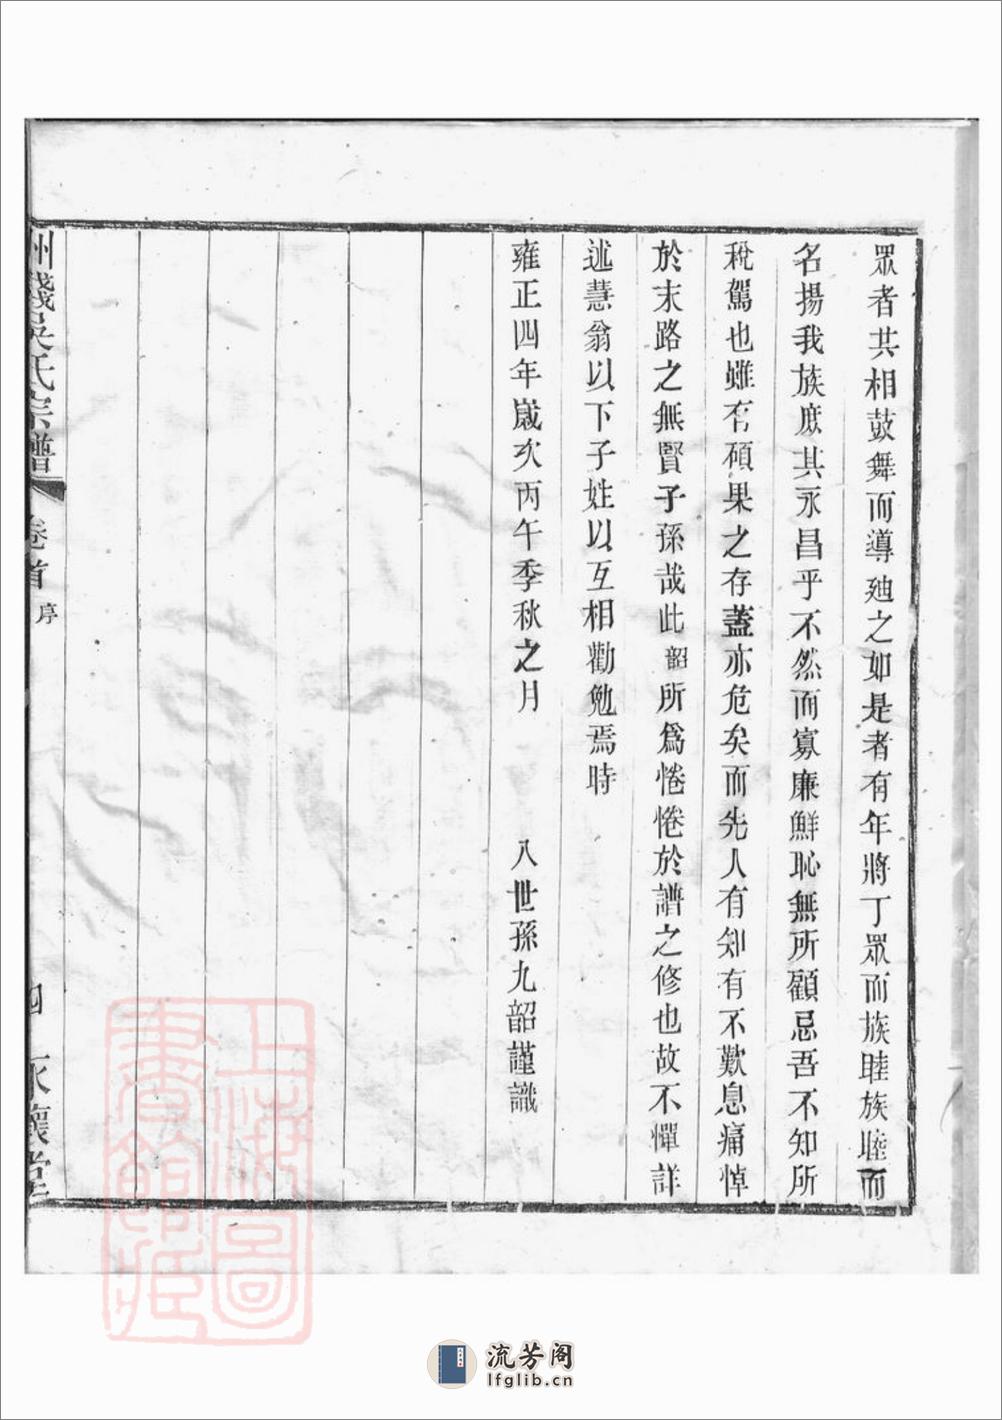 眾者共相鼓舞而導廸之如是者有年將丁眾而族睦族睦而
名揚我族庶其永昌乎不然而寡廉鮮恥無所顧忌吾不知所
稅駕也雖有碩果之存蓋亦危矣而先人有知有不歎息痛悼
於末路之無賢子孫哉此韶所爲惓惓於譜之修也故不憚詳
述慧翁以下子姓以互相勸勉焉時
雍正四年嵗次丙午季秋之月　八世孫九韶謹識
洲錢吳氏宗譜　卷首　序　四　永懷堂
上海圖書館藏
流芳阁
lfglib.cn